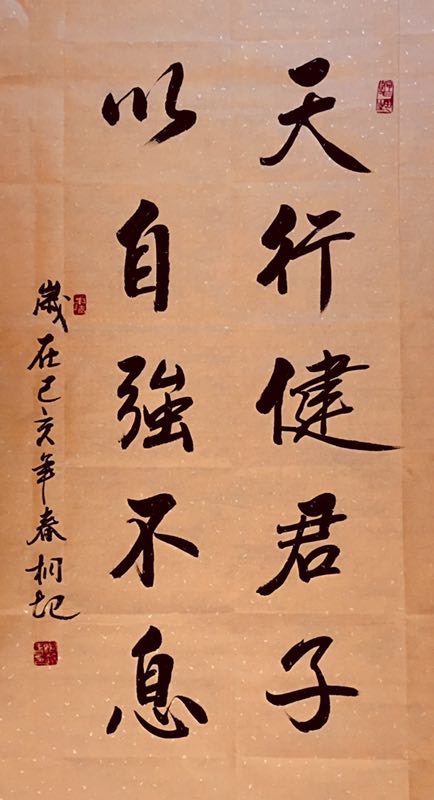 天行健君子
以自強不息
歲在己亥年春桐記